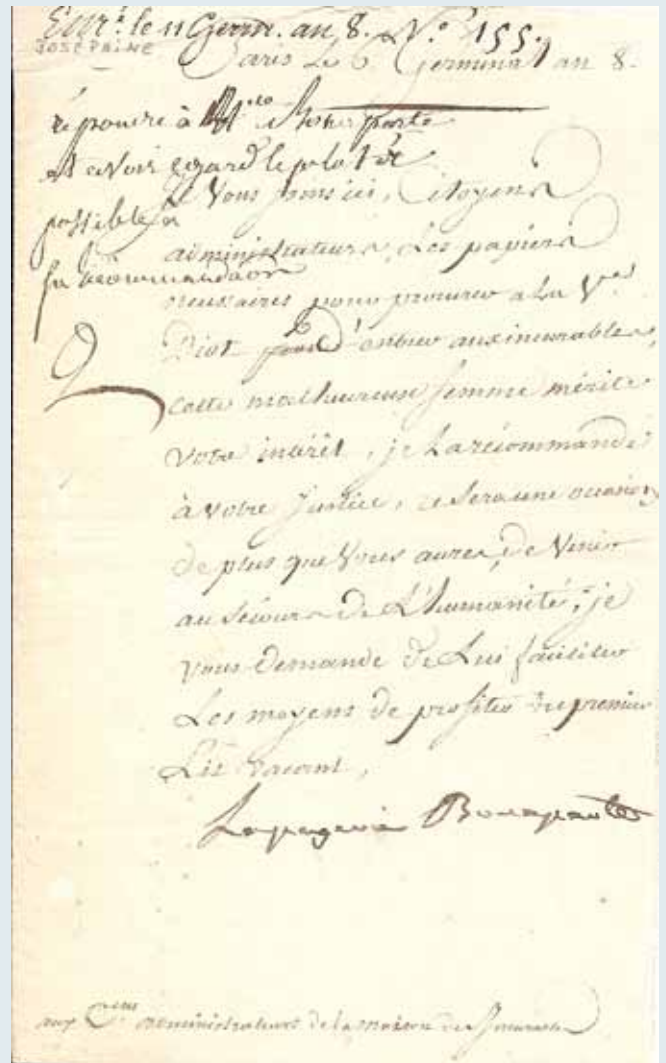 Enr.é le 11 Germ. an 8. N.o 155.
JOSEPHINE
Paris le 6 Germinal an 8.
répondre à M.me Bonaparte
et avoir egard le plutôt
possible à
sa recommandation
Vous trouverez ici, Citoyens
administrateurs, Les papiers
necessaires pour procurer a La V.ve
Diot l'entrée aux incurables,
cette malheureuse femme mérite
votre intérêt, je La récommande
à votre justice, ce sera une occasion
de plus que Vous aurez, de Venir
au Sécours de L'humanité, je
vous demande de Lui faciliter
Les moyens de profiter du premier
Lit vacant,
Lapagerie Bonaparte
aux C.ens administrateurs de la maison des Incurables